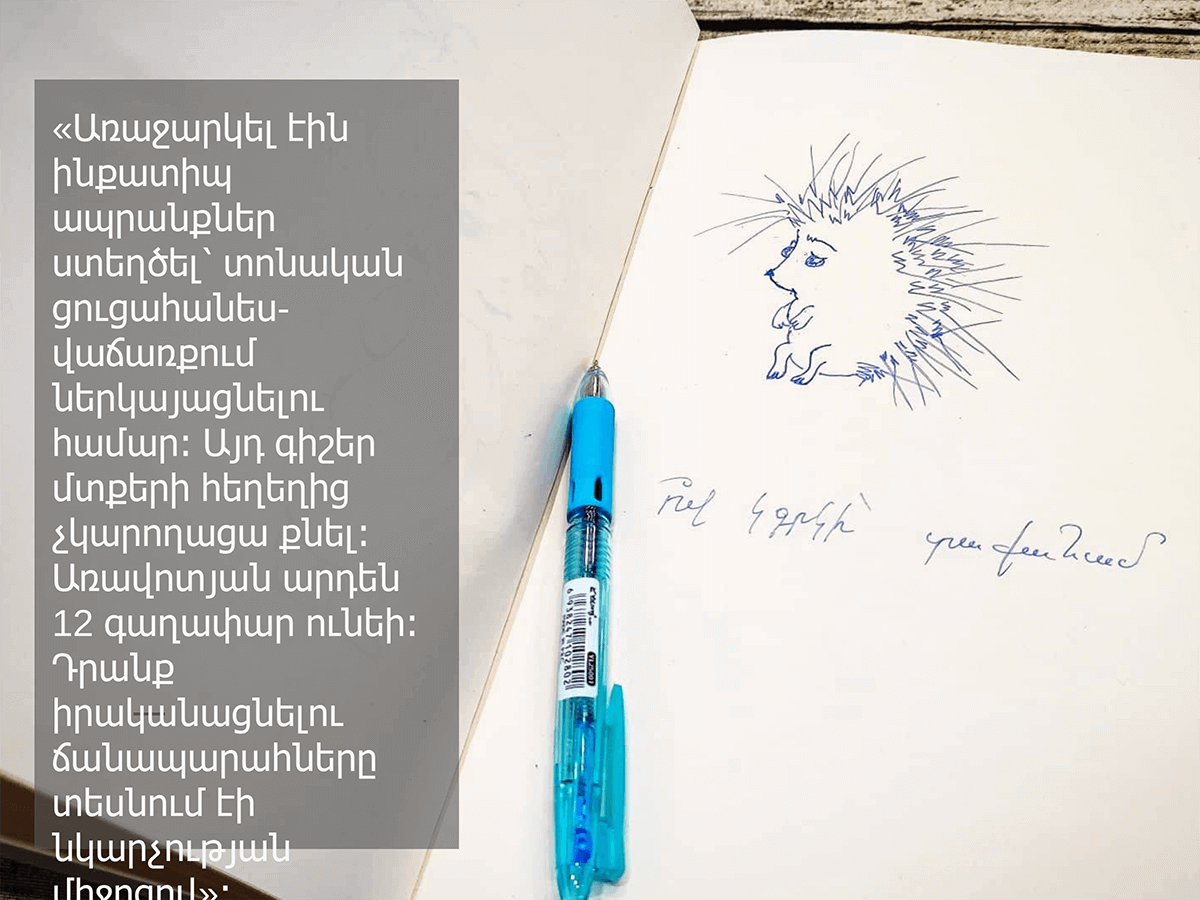 «Առաջարկել էին
ինքատիպ
ապրանքներ
ստեղծել՝ տոնական
ցուցահանես-
վաճառքում
ներկայացնելու
համար: Այդ գիշեր
մտքերի հեղեղից
չկարողացա քնել:
Առավոտյան արդեն
12 գաղափար ունեի:
Դրանք
իրականացնելու
ճանապարահները
տեսնում էի
նկարչության
միջոցով»:
6 938247 102802